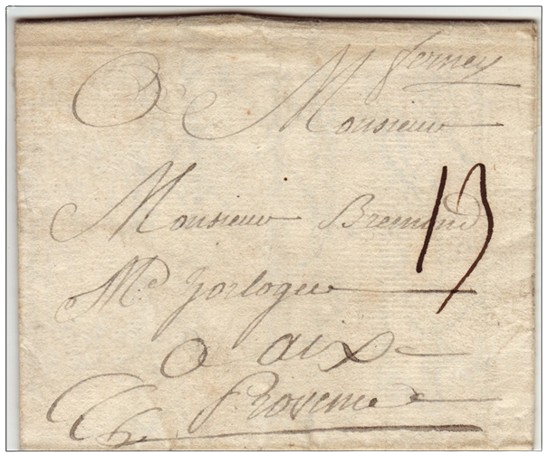 Ferney
A Monsieur
Monsieur Bremond
Md horloger
a aix
En Provence
13